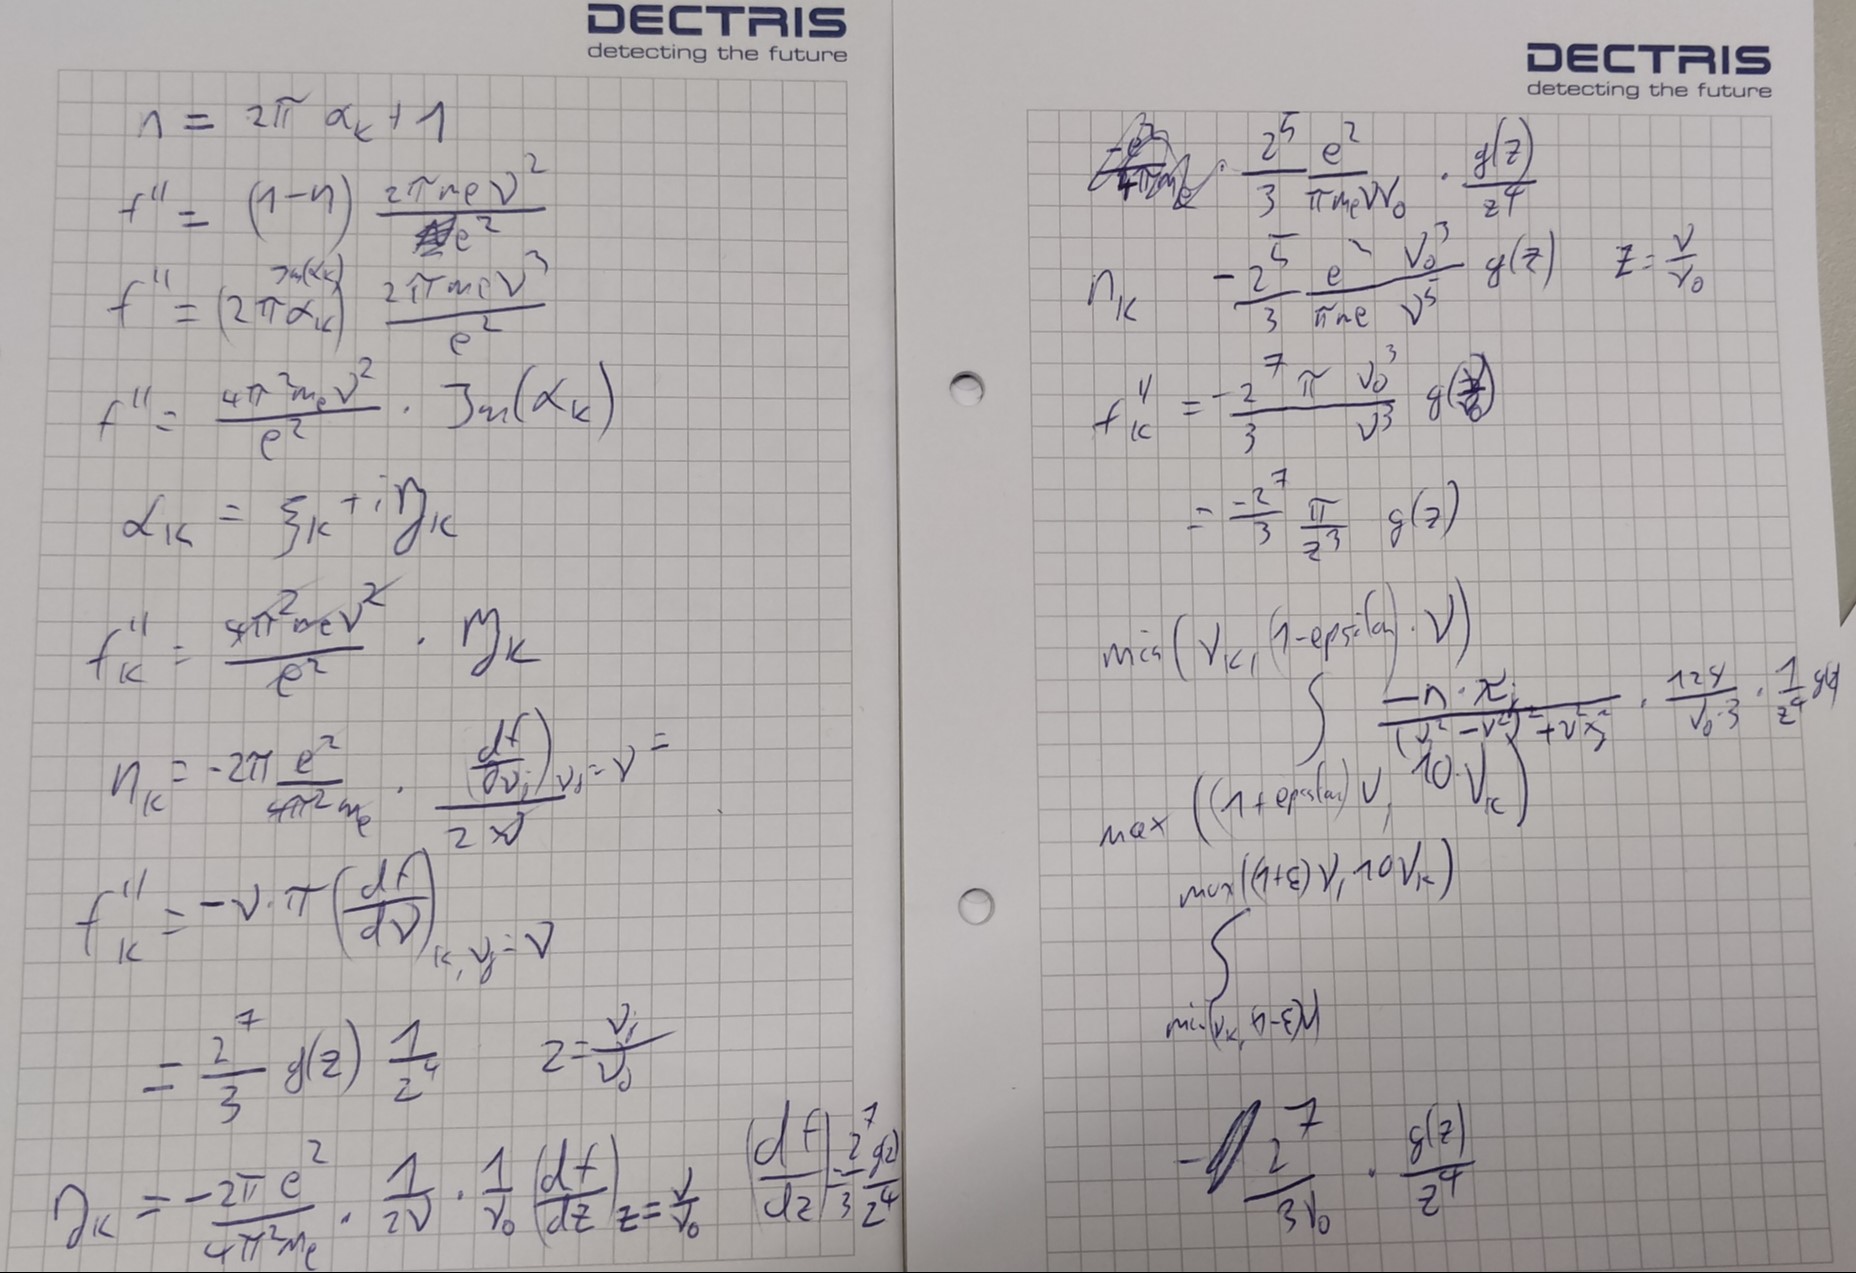 DECTRIS
detecting the future
n = 2π α_K + 1
f'' = (1-n) 2πmeν² / e²
f'' = (2πα_K) 2πmeν³ / e²
Im(α_K)
f'' = 4π²m_eν² / e² · Im(α_K)
α_K = ξ_K + iη_K
f''_K = 4π²meν² / e² · η_K
η_K = -2π e² / 4π²m_e · (df/dν_j)_{ν_j=ν} / 2ν =
f''_K = -ν·π (df/dν)_{K, ν_j=ν}
= 2⁷/3 g(z) 1/z⁴ z = ν_j/ν_0
η_K = -2π e² / 4π²m_e · 1/2ν · 1/ν_0 (df/dz)_{z=ν/ν_0} (df/dz) = 2⁷/3 g(z)/z⁴
DECTRIS
detecting the future
· 2⁵/3 e²/πm_eνν_0 · g(z)/z⁴
η_K -2⁵/3 e²/πme ν_0³/ν⁵ g(z) z = ν/ν_0
f''_K = -2⁷/3 π ν_0³/ν³ g(ν/ν_0)
= -2⁷/3 π/z³ g(z)
min(ν_K, (1-epsilon)·ν)
∫ -n·π / (ν² - ν²)² + ν² · 128/ν_0·3 · 1/z⁴ g(z)
max((1+epsilon)ν, 10·ν_K)
max((1+ε)ν, 10ν_K)
∫
min(ν_K, (1-ε)ν)
- 2⁷/3ν_0 · g(z)/z⁴